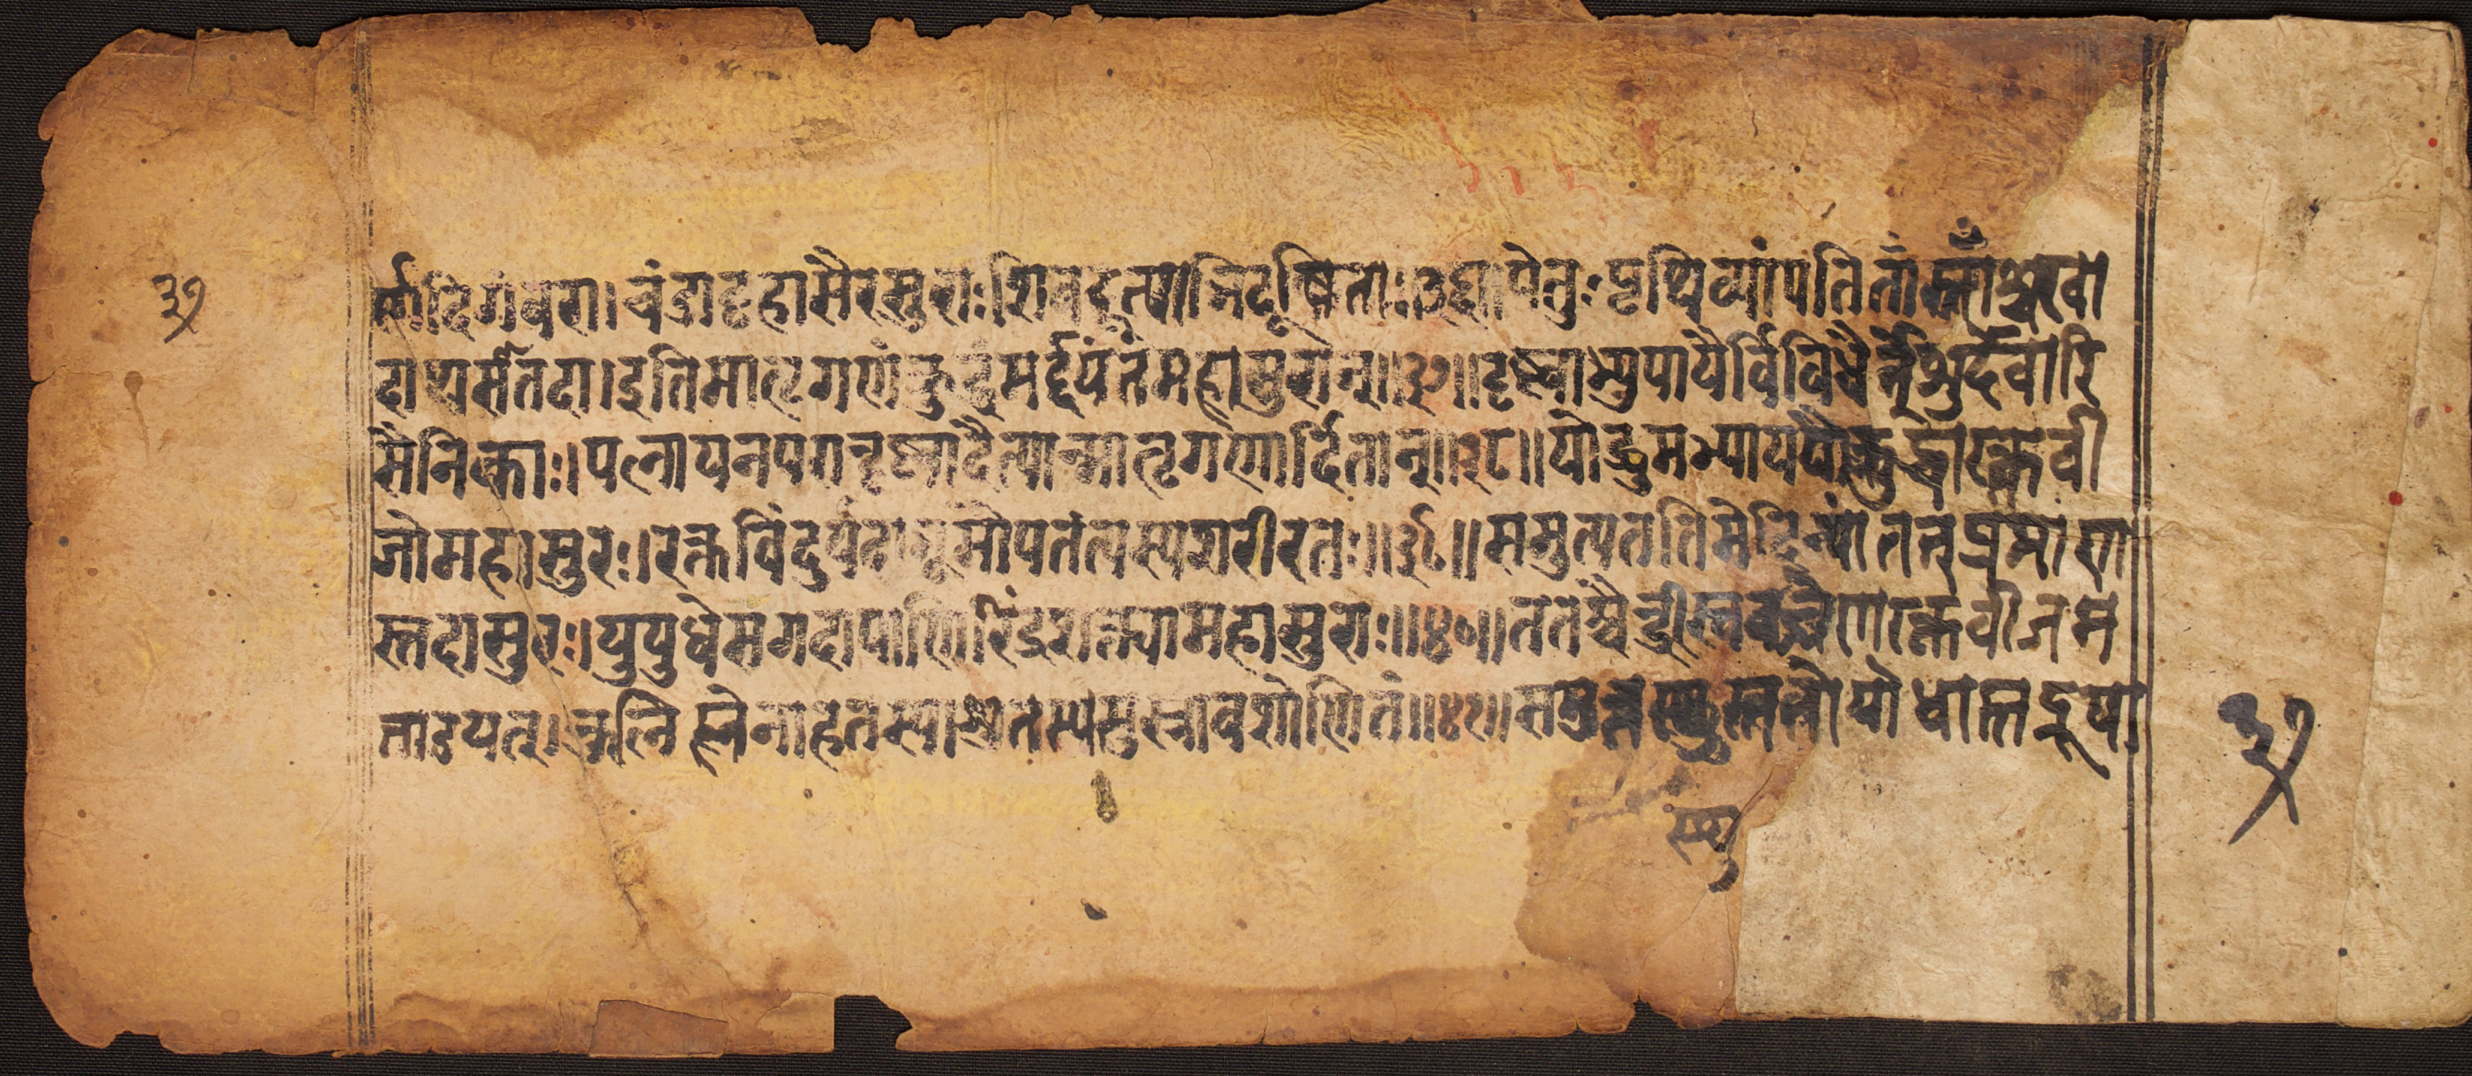 ३७
र्णादिगंबरा। चंडाट्टहासैरसुराः शिवदूत्याभिदूषिताः॥३६॥ पेतुः पृथिव्यां पतितांस्तांश्चखा
दाथ सा तदा। इति मातृगणं क्रुद्धं मर्द्दयंतं महासुरान्॥३७॥ दृष्ट्वाभ्युपायैर्विविधैर्नेशुर्देवारि
सैनिकाः। पलायनपरान्दृष्ट्वा दैत्यान्मातृगणार्दितान्॥३८॥ योद्धुमभ्याययौ क्रुद्धो रक्तवी
जो महासुरः। रक्तविंदुर्यदा भूमौ पतंत्यस्य शरीरतः॥३९॥ समुत्पतति मेदिन्यां तत्प्रमाणा
स्तदासुरः। युयुधे स गदापाणिरिंद्रशक्त्या महासुराः॥४०॥ ततश्चैन्द्री स्ववज्रेण रक्तवीजम
ताडयत्। कुलिशेनाहतस्याशु तस्य सुस्राव शोणितं॥४१॥ समुत्तस्थुस्ततो योधास्तद्रूपा
स्थु
३७